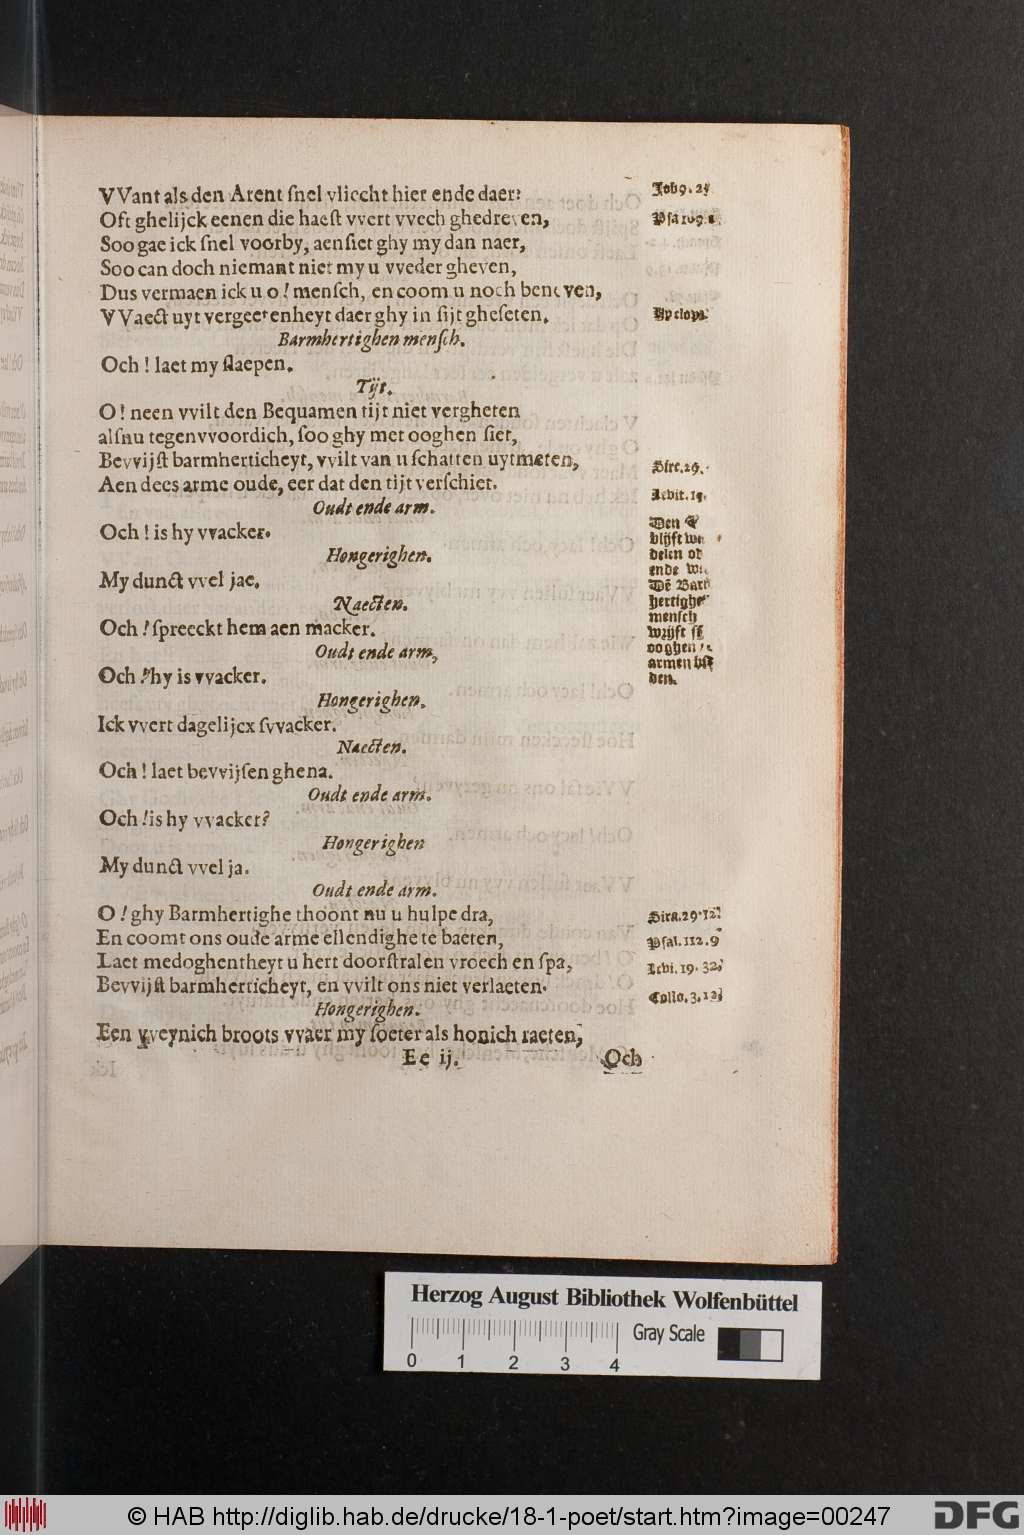 VVant als den Arent ſnel vliecht hier ende daer:
Oft ghelijck eenen die haeſt vvert vvech ghedreven,
Soo gae ick ſnel voorby, aenſiet ghy my dan naer,
Soo can doch niemant niet my u vveder gheven,
Dus vermaen ick u o! menſch, en coom u noch beneven,
VVaect uyt vergeetenheyt daer ghy in ſijt gheſeten.
Barmhertighen menſch.
Och! laet my ſlaepen.
Tijt.
O! neen vvilt den Bequamen tijt niet vergheten
alſnu tegenvvoordich, ſoo ghy met ooghen ſiet,
Bevvijſt barmherticheyt, vvilt van u ſchatten uytmeten,
Aen dees arme oude, eer dat den tijt verſchiet.
Oudt ende arm.
Och! is hy vvacker.
Hongerighen.
My dunct vvel jae.
Naecten.
Och! ſpreeckt hem aen macker.
Oudt ende arm,
Och! hy is vvacker.
Hongerighen.
Ick vvert dagelijcx ſvvacker.
Naecten.
Och! laet bevvijſen ghena.
Oudt ende arm.
Och! is hy vvacker?
Hongerighen
My dunct vvel ja.
Oudt ende arm.
O! ghy Barmhertighe thoont nu u hulpe dra,
En coomt ons oude arme ellendighe te baeten,
Laet medoghentheyt u hert doorſtralen vroech en ſpa,
Bevvijſt barmherticheyt, en vvilt ons niet verlaeten.
Hongerighen.
Een vveynich broots vvaer my ſoeter als honich raeten,
Ee ij.
Och
Job 9. 25
Pſa 109.
Sirc. 29.
Levit. 19.
Den
blijft
delen
ende
Dē Bar
hertighe
menſch
wrijft
ooghen
armen
den.
Sira. 29. 12
Pſal. 112. 9
Levi. 19. 32
Collo. 3. 12
Herzog August Bibliothek Wolfenbüttel
Gray Scale
0 1 2 3 4
© HAB http://diglib.hab.de/drucke/18-1-poet/start.htm?image=00247
DFG